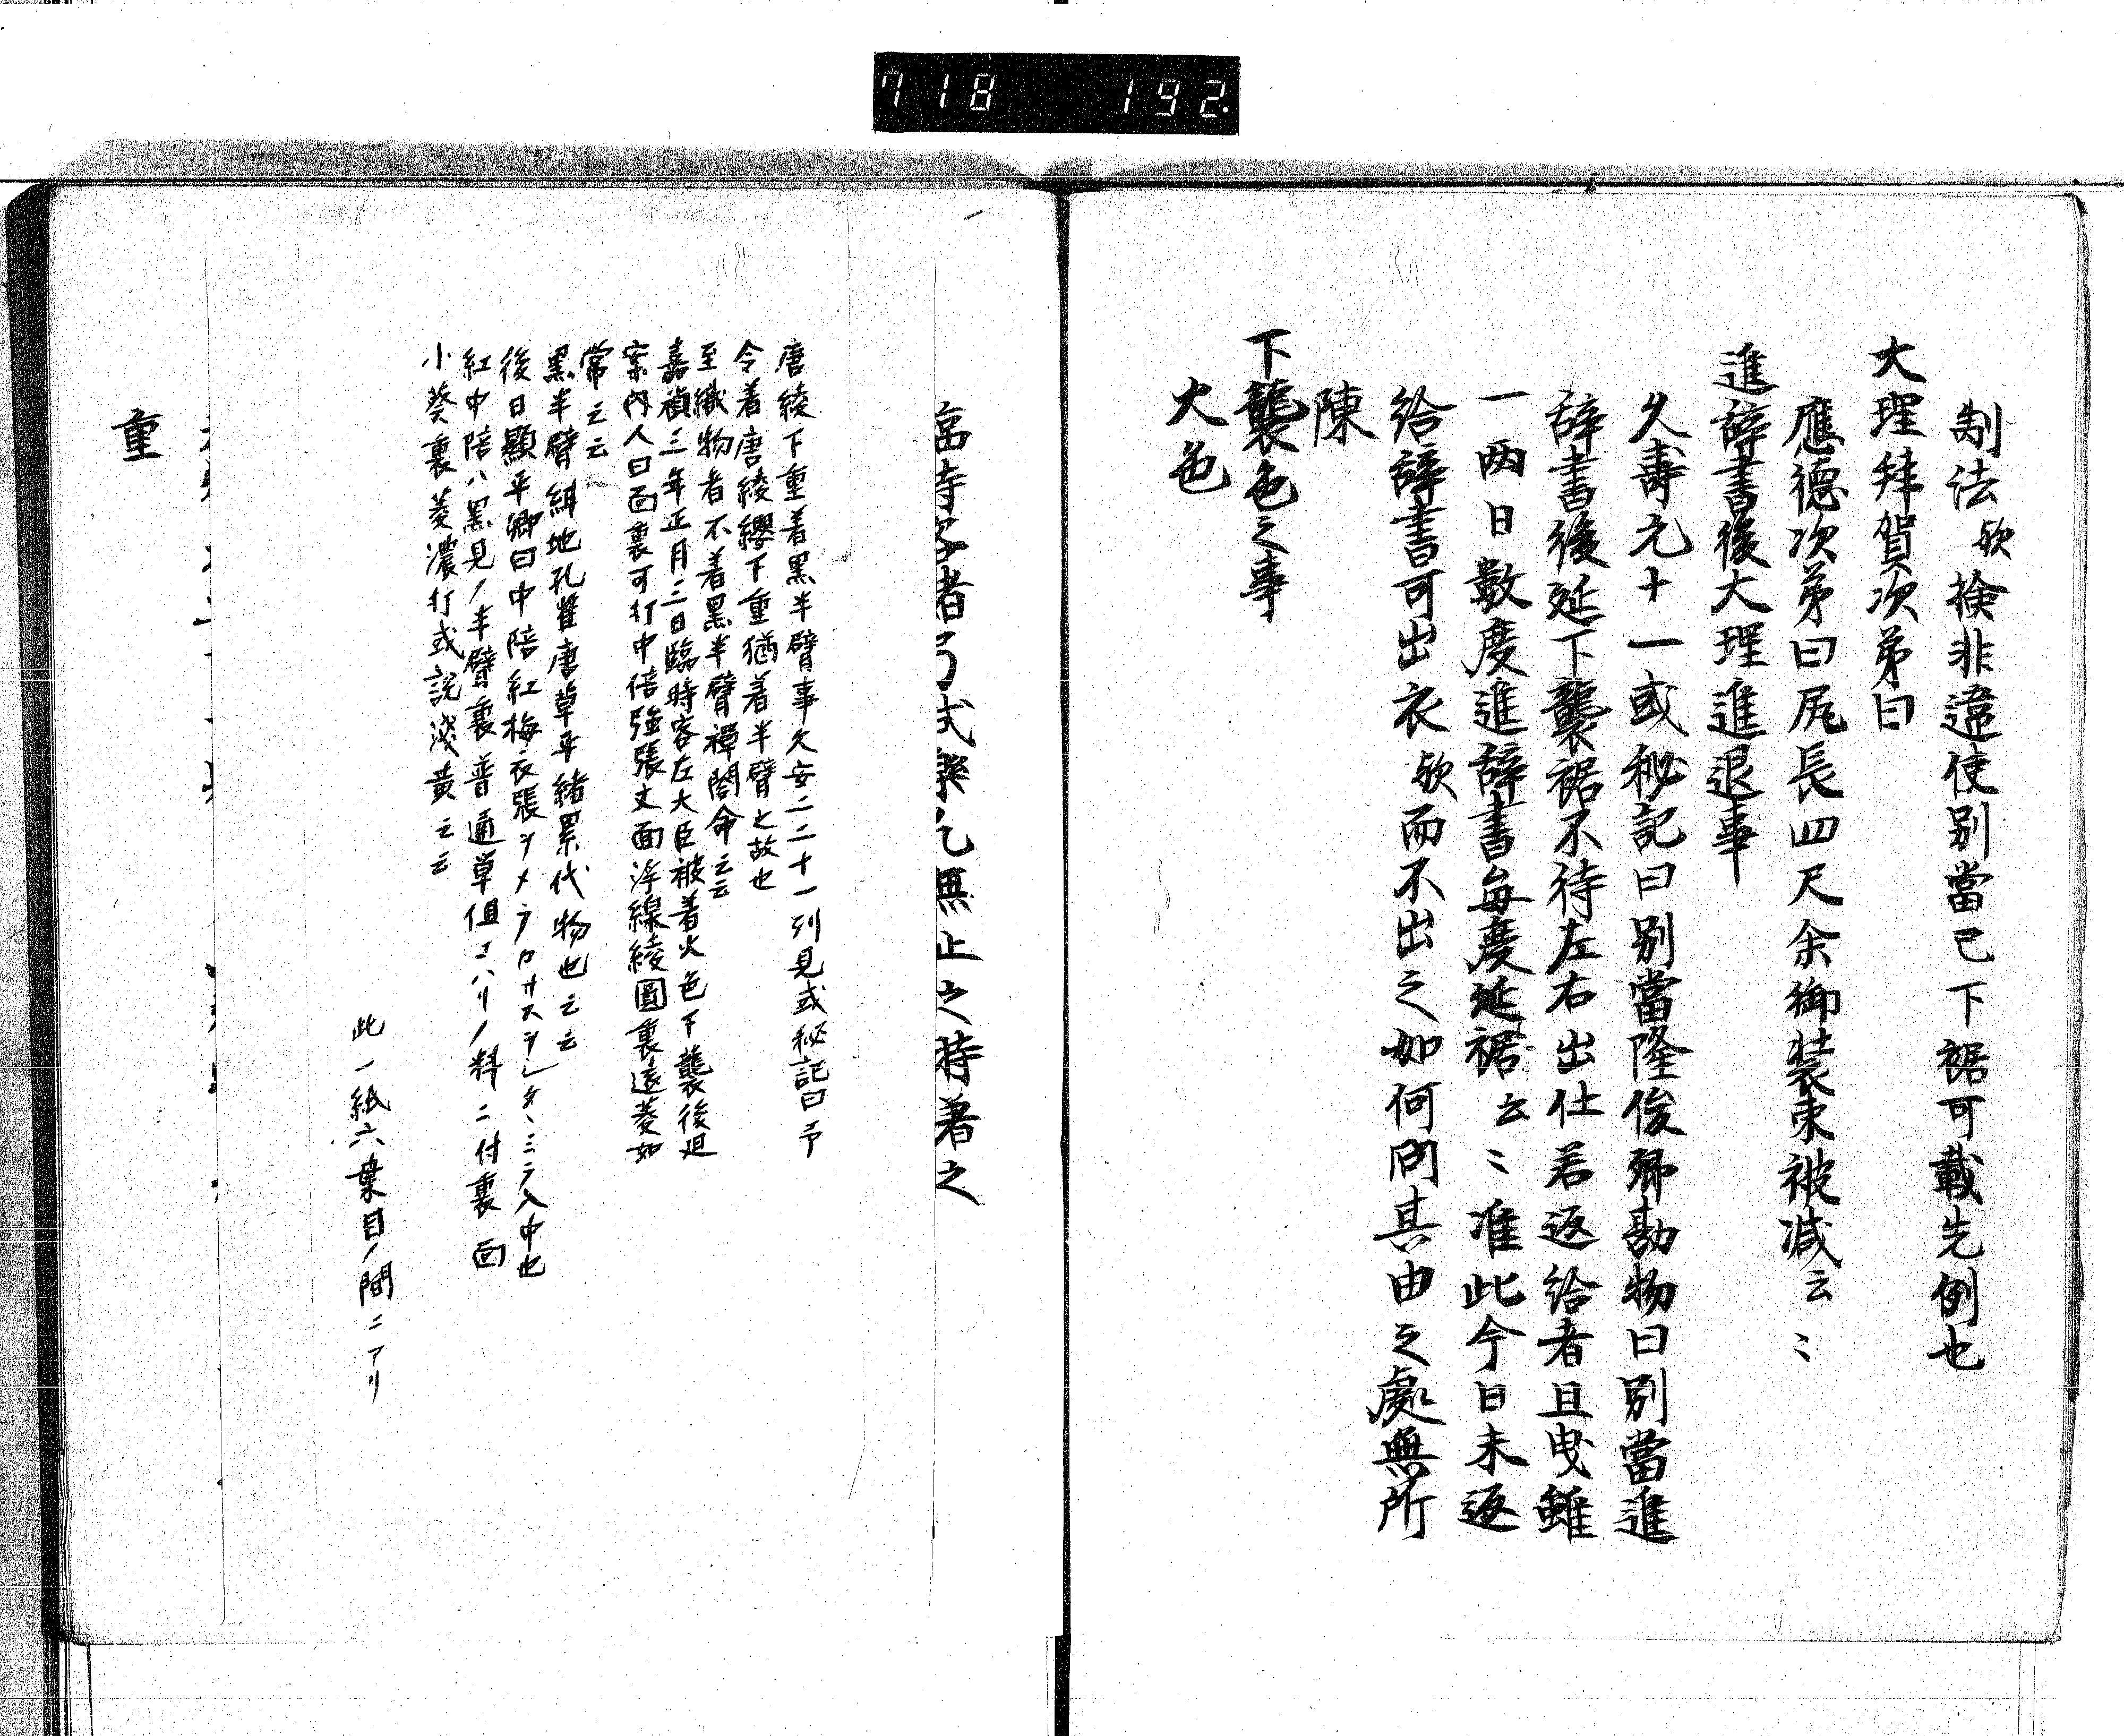 718 192
制法欤検非違使別當已下裾可載先例也
大理拜賀次第曰
應德次第曰尻長四尺余御装束被減云〻
進辞書後大理進退事
久壽元十一或秘記曰別當隆俊卿勘物曰別當進
辞書後延下襲裾不待左右出仕若返給者且曳雖
一両日數度進辞書毎度延裾云〻准此今日未返
給辞書可出衣欤而不出之如何問其由之處無所
陳
下襲色之事
火色
臨時客諸弓試樂乞無止之時著之
唐綾下重着黒半臂事久安二二十一列見或秘記曰予
令着唐綾纓下重猶着半臂之故也
至織物者不着黒半臂禅閤命云云
嘉禎三年正月二日臨時客左大臣被着火色下襲後廻
案内人曰面裏可打中倍強張文面浮線綾圓裏遠菱如
常云云
黒半臂緂地孔雀唐草平緒累代物也云云
後日顯平卿曰中陪紅梅衣張
紅中陪ハ黒見ノ半臂裏普通草但コハリノ料ニ付裏面
小葵裏菱濃打或説淺黄云云
此一紙六葉目ノ間ニアリ
重